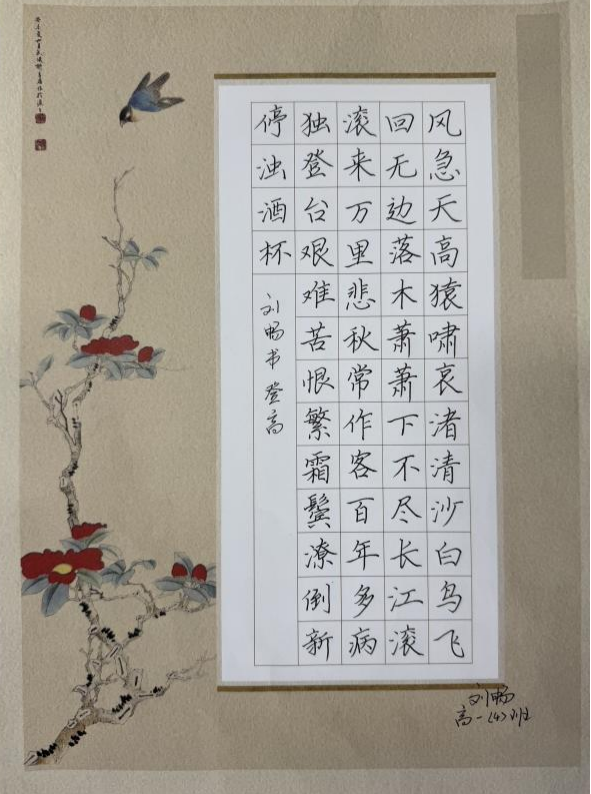 风急天高猿啸哀渚清沙白鸟飞
回无边落木萧萧下不尽长江滚
滚来万里悲秋常作客百年多病
独登台艰难苦恨繁霜鬓潦倒新
停浊酒杯
刘畅书登高
刘畅
高一(4)班